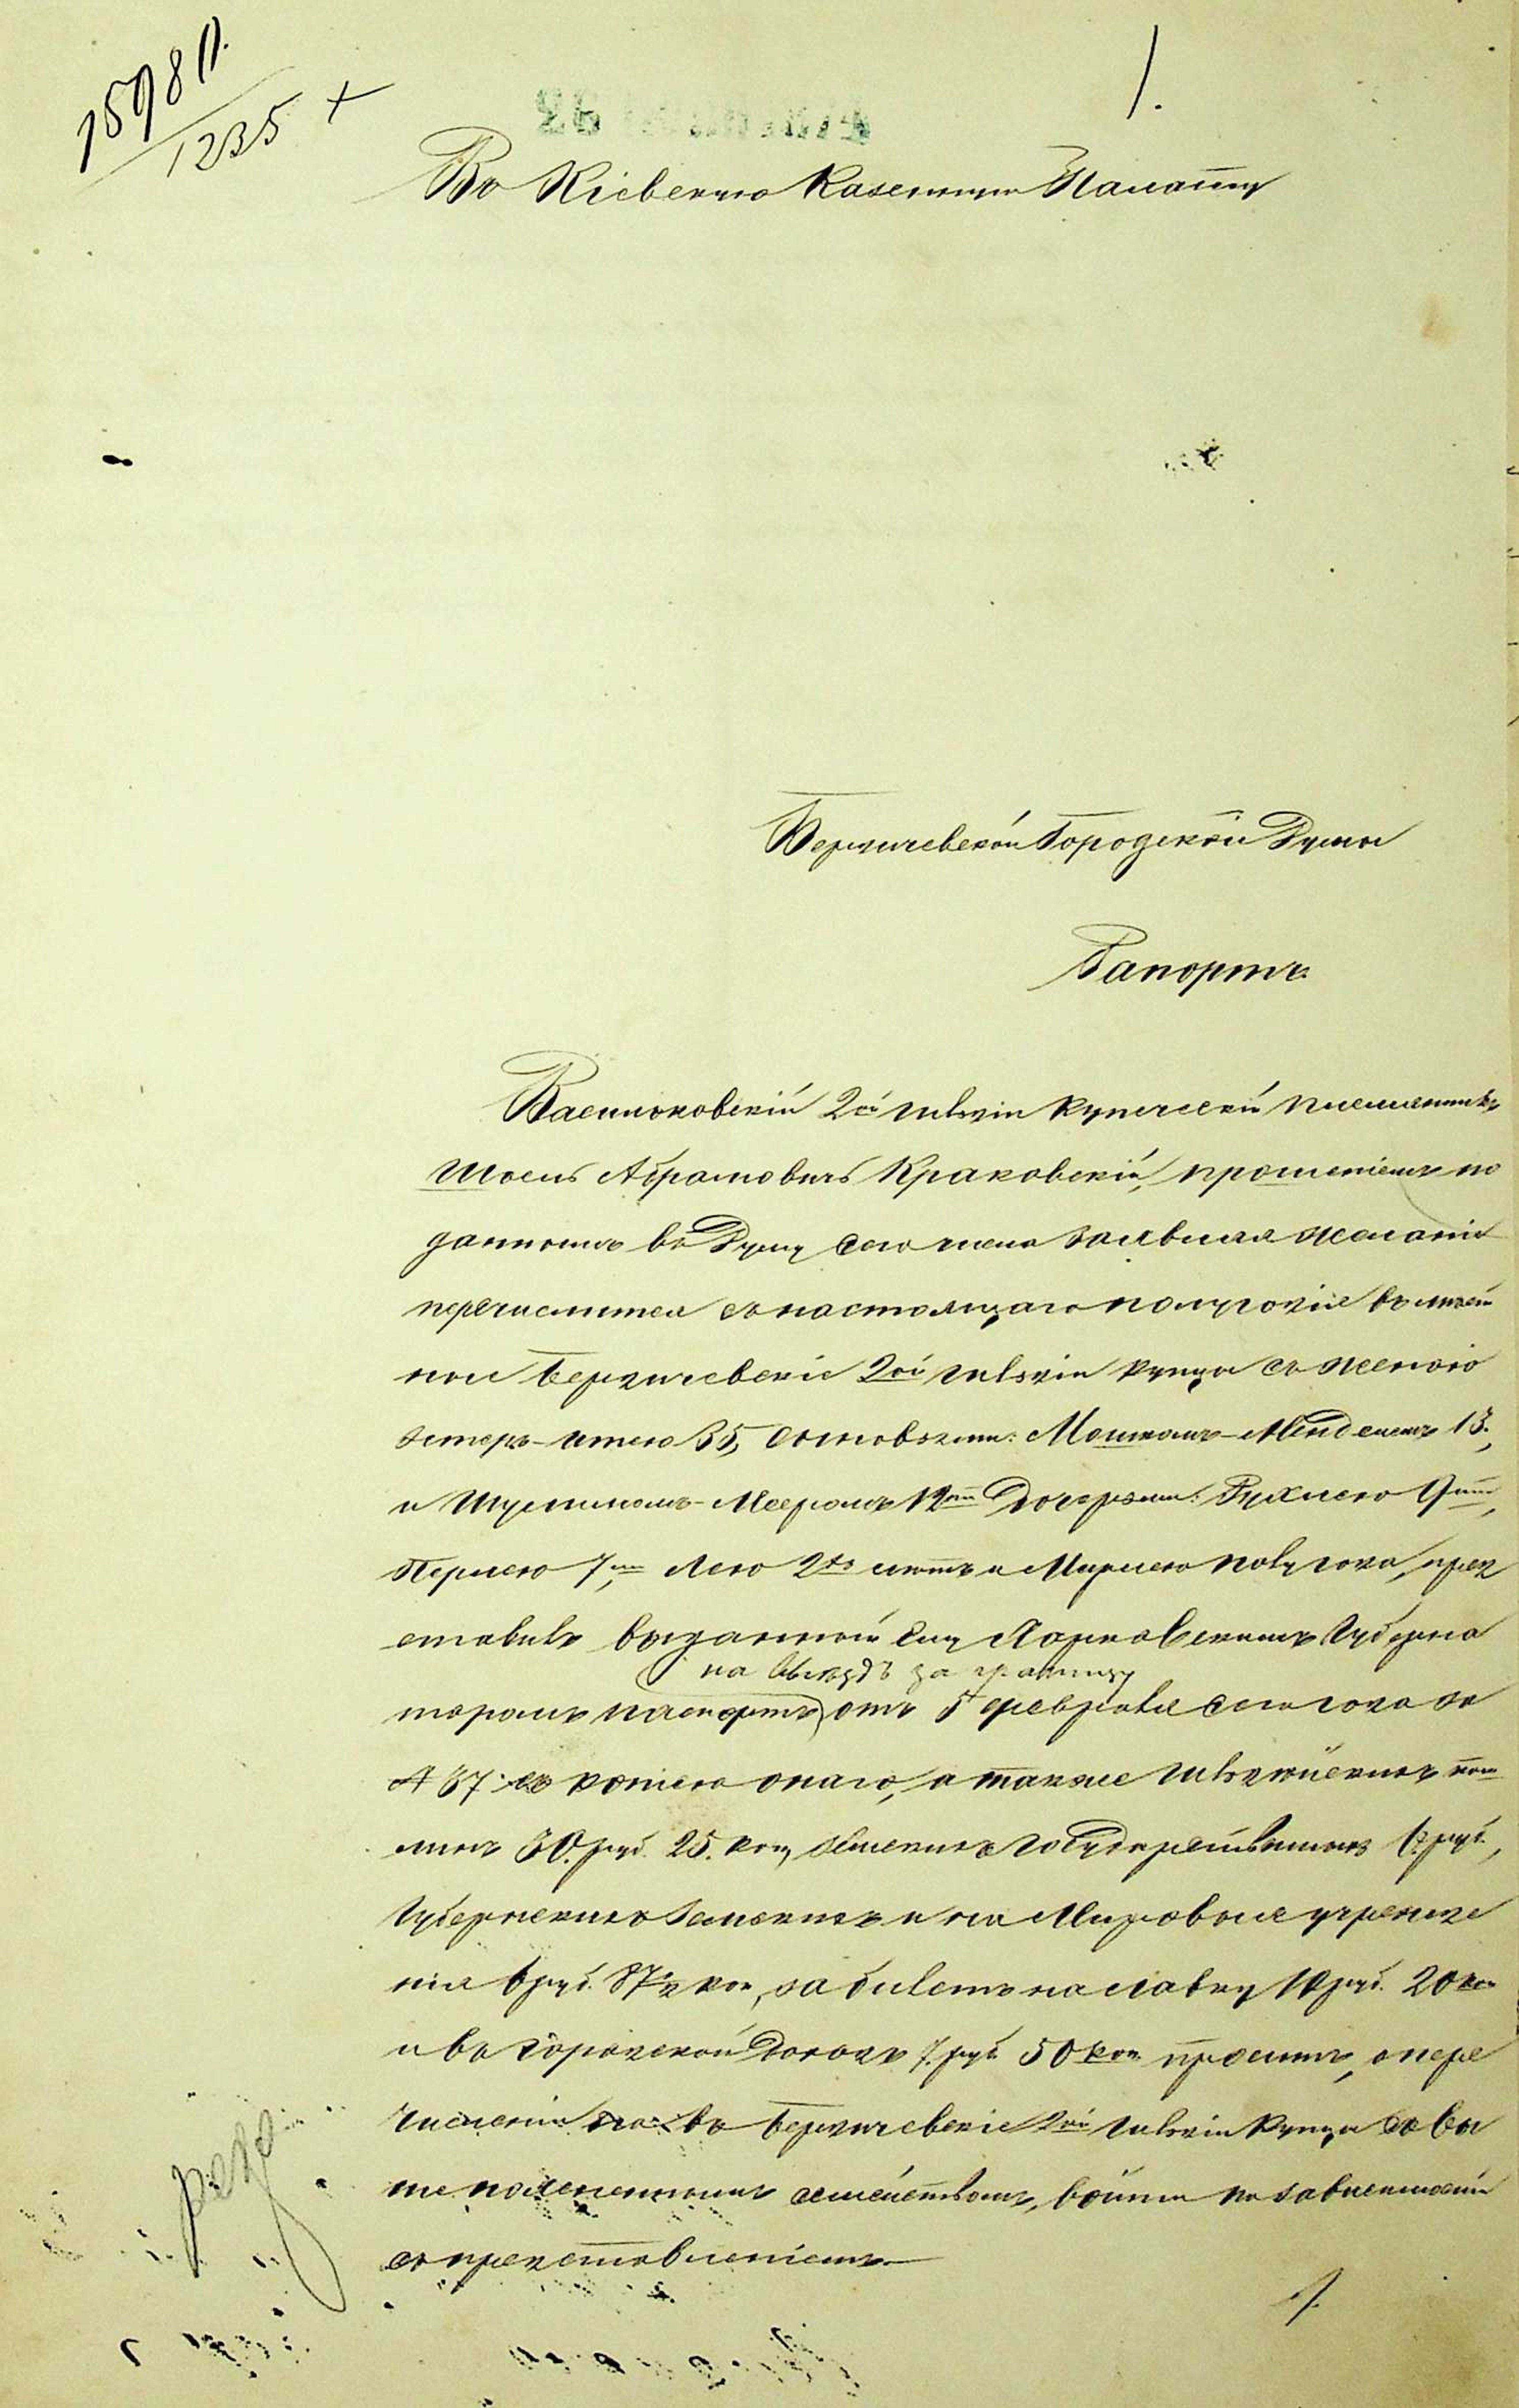 15981.
1235 +
1.
Въ Кіевскую Казенную Палату
Бердичевской Городской Думы
Рапортъ.
Васильковскій 2ой гильдіи купеческій племянникъ
Шоель Абрамовичъ Краковскій, прошеніемъ по
даннымъ въ Думу сего числа заявляя желаніе
перечислится съ настоящаго полугодія въ
Бердичевскіе 2ой гильдіи купцы съ женою
35, сыновьями: Мошкомъ-Менделемъ 13.,
и Шулимомъ-Мееромъ 12ти дочерьми: Рухлею 9ти,
Перлею 7ми, Леею 2хъ лѣтъ и Мирлею полугода, пред
ставивъ выданный ему Губерна
на выѣздъ за границу
торомъ паспортъ отъ 5 февраля сего года за
№ 37 съ копіею онаго, а также гильдейскихъ пош
линъ 30. руб. 25. коп, земскихъ государственныхъ руб.,
Губернскихъ Земскихъ и на Мировыя учрежде
нія 6 руб. 87½ коп, за билетъ на лавку 10 руб. 20 коп
и въ городской доходъ 7. руб. 50 коп. проситъ, о пере
численіи въ Бердичевскіе 2ой гильдіи купцы съ вы
ше поясненнымъ семействомъ, войти по зависимости
съ представленіемъ.—